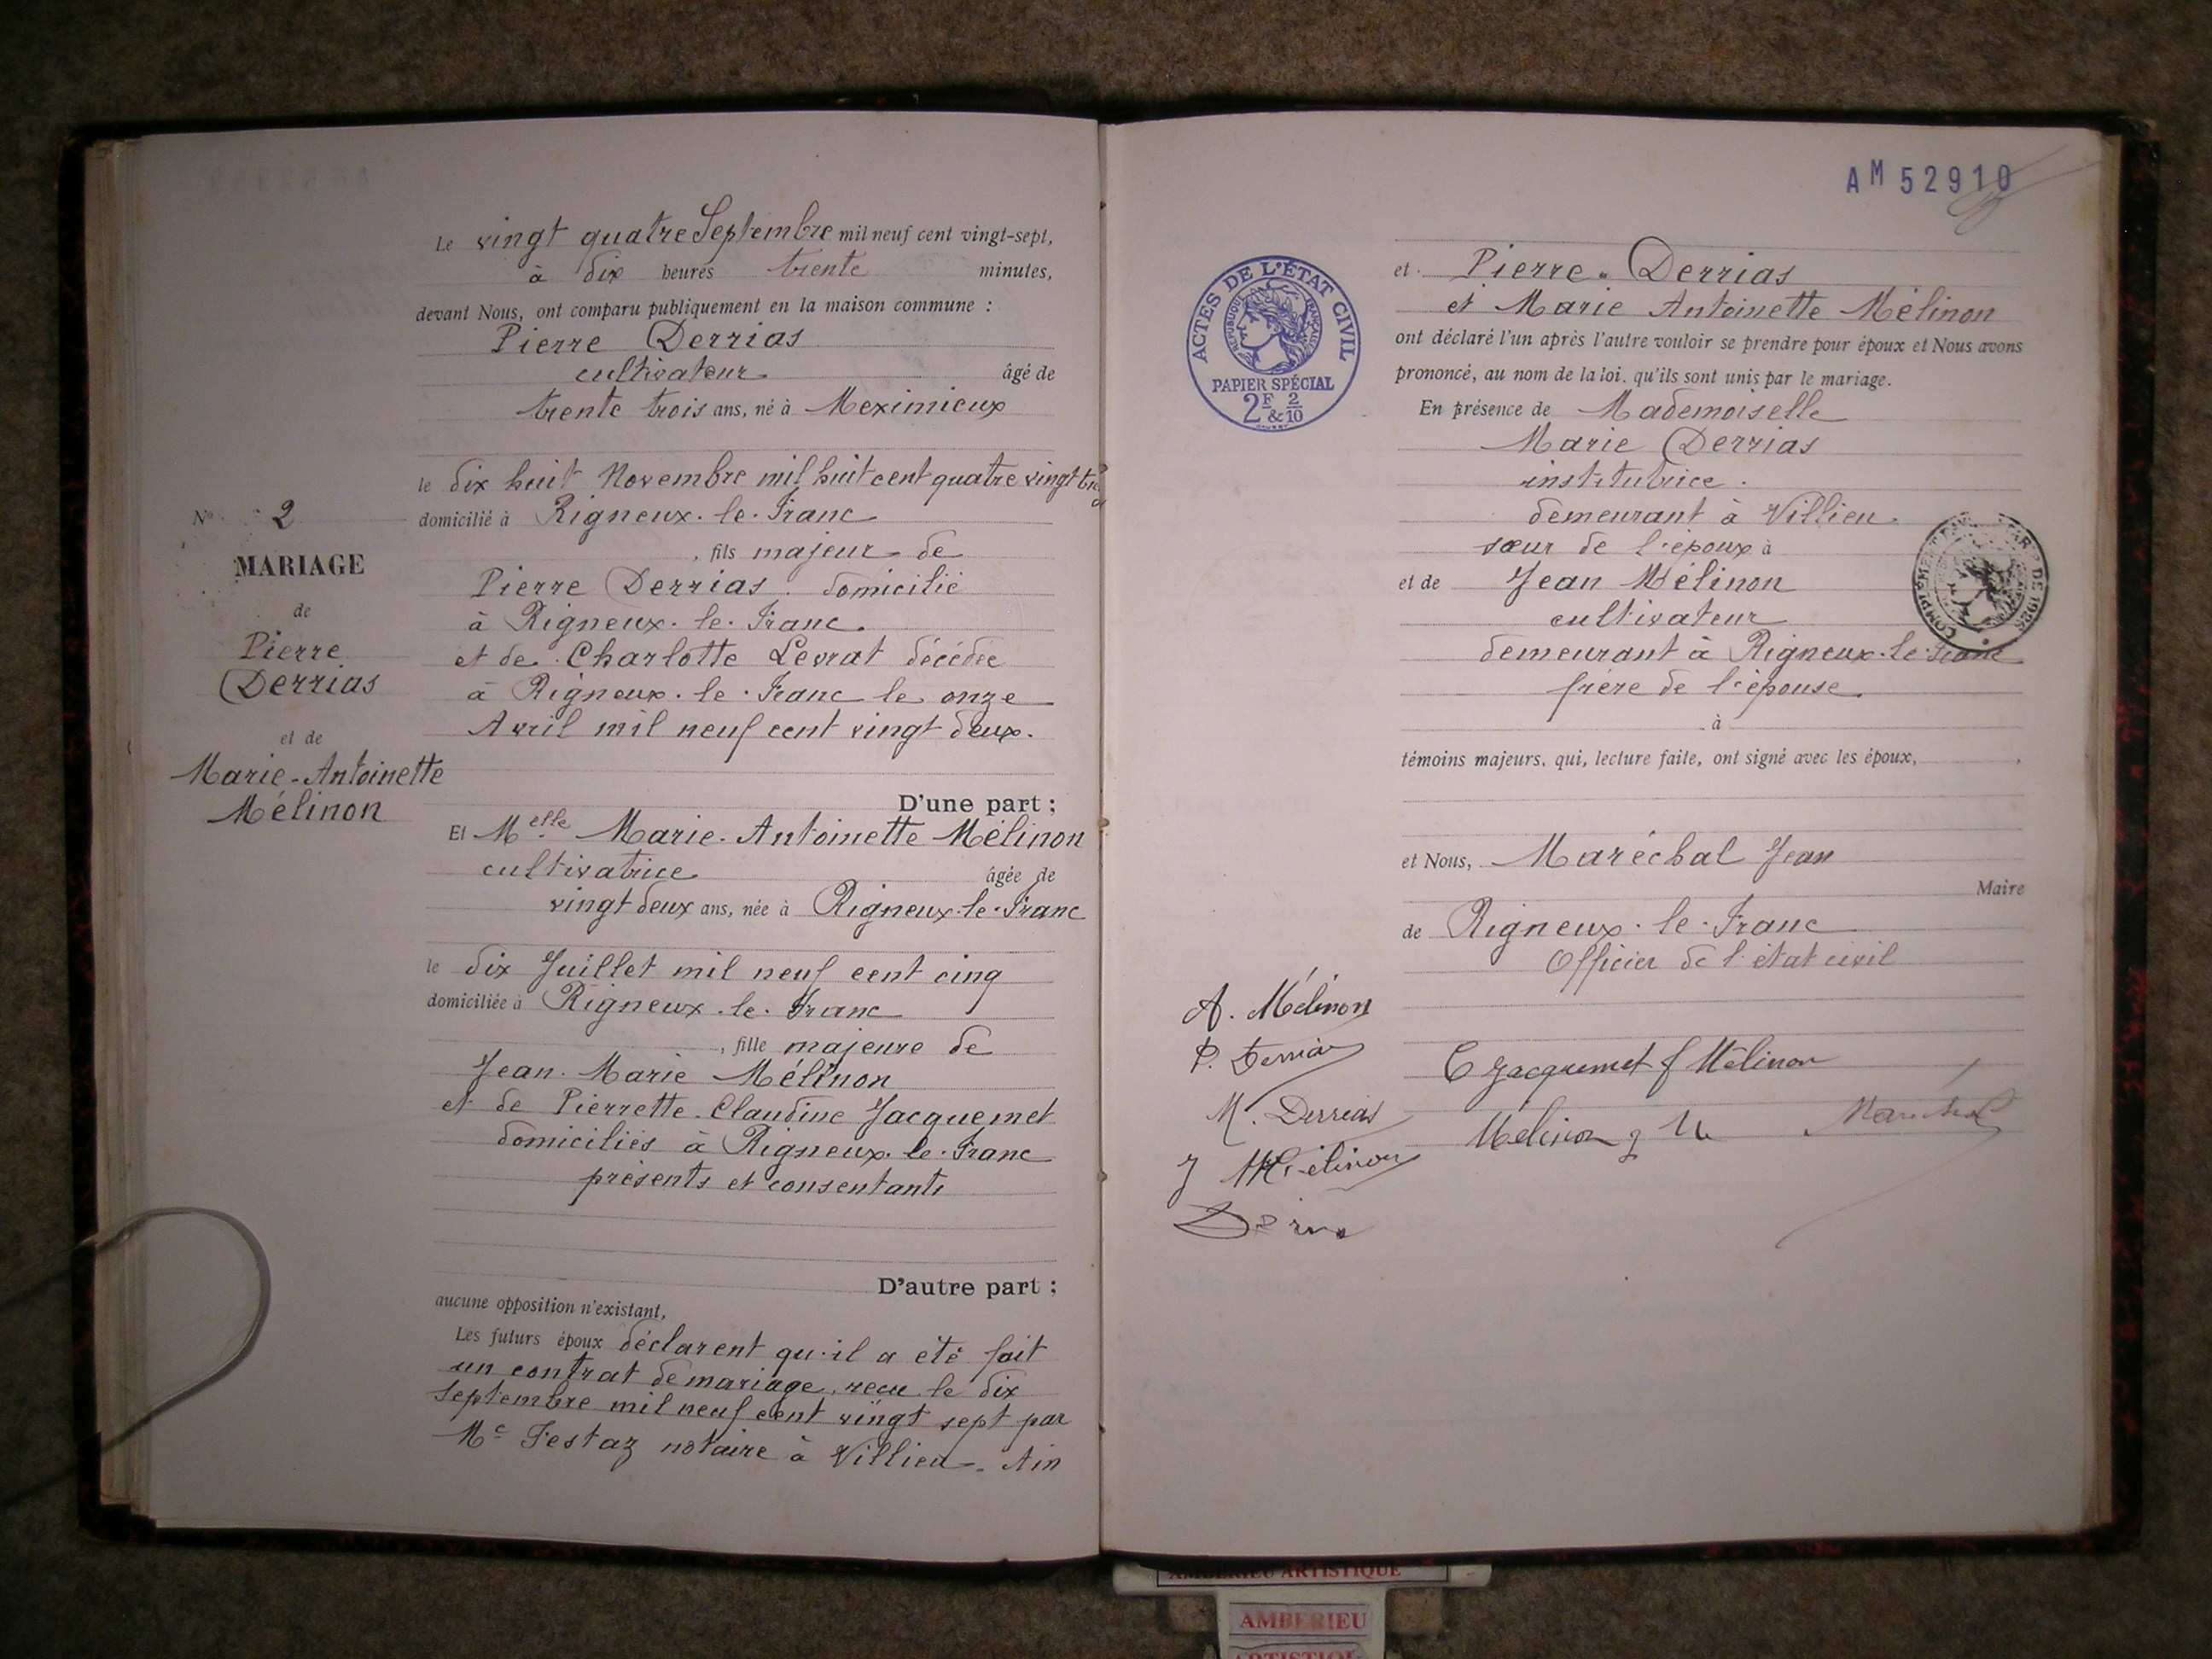 N° 2
MARIAGE
de
Pierre
Derrias
et de
Marie-Antoinette
Mélinon
Le vingt quatre Septembre mil neuf cent vingt-sept,
à dix heures trente minutes,
devant Nous, ont comparu publiquement en la maison commune :
Pierre Derrias
cultivateur âgé de
trente trois ans, né à Meximieux
le dix huit Novembre mil huit cent quatre vingt
domicilié à Rigneux-le-Franc
, fils majeur de
Pierre Derrias domicilié
à Rigneux-le-Franc
et de Charlotte Levrat décédée
à Rigneux-le-Franc le onze
Avril mil neuf cent vingt deux.
D'une part ;
Et Melle Marie-Antoinette Mélinon
cultivatrice âgée de
vingt deux ans, née à Rigneux-le-Franc
le dix Juillet mil neuf cent cinq
domiciliée à Rigneux-le-Franc
, fille majeure de
Jean-Marie Mélinon
et de Pierrette-Claudine Jacquemet
domiciliés à Rigneux-le-Franc
présents et consentants
D'autre part ;
aucune opposition n'existant,
Les futurs époux déclarent qu'il a été fait
un contrat de mariage, reçu le dix
septembre mil neuf cent vingt sept par
Me Festaz notaire à Villieu - Ain
AM 52910
ACTES DE L'ÉTAT CIVIL
RÉPUBLIQUE FRANÇAISE
PAPIER SPÉCIAL
2F & 2/10
et Pierre Derrias
et Marie Antoinette Mélinon
ont déclaré l'un après l'autre vouloir se prendre pour époux et Nous avons
prononcé, au nom de la loi, qu'ils sont unis par le mariage.
En présence de Mademoiselle
Marie Derrias
institutrice.
demeurant à Villieu
sœur de l'époux à
et de Jean Mélinon
cultivateur
demeurant à Rigneux-le-Franc
frère de l'épouse
à
témoins majeurs, qui, lecture faite, ont signé avec les époux, ,
et Nous, Maréchal Jean
Maire
de Rigneux-le-Franc
Officier de l'état civil
A. Mélinon
P. Derrias
M. Derrias
J Mélinon
C Jacquemet f Mélinon
Melinon J M
Maréchal
AMBERIEU ARTISTIQUE
AMBERIEU
ARTISTIQUE